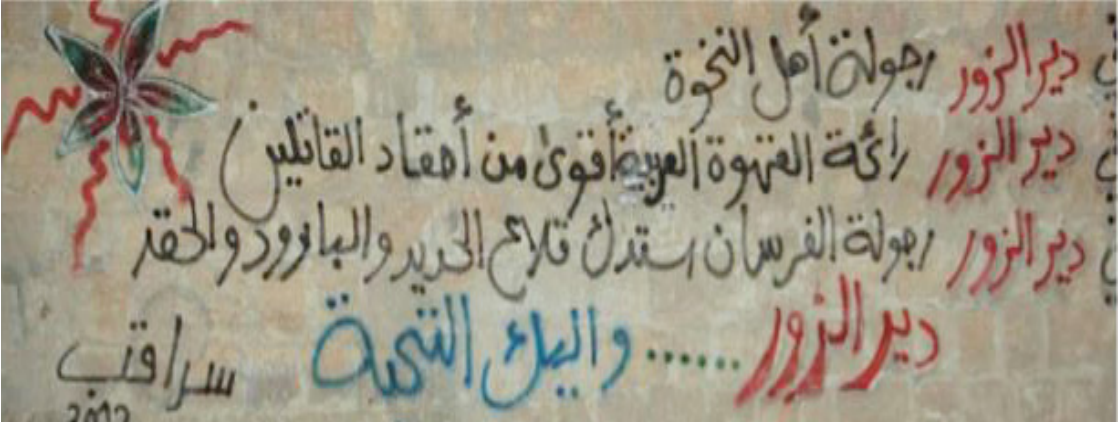 في دير الزور رجولة أهل النخوة
في دير الزور رائحة القهوة العربية أقوى من أحقاد القاتلين
في دير الزور رجولة الفرسان ستدك قلاع الحديد والبارود والحقد
دير الزور ...... واليك التحية
سراقب
2012